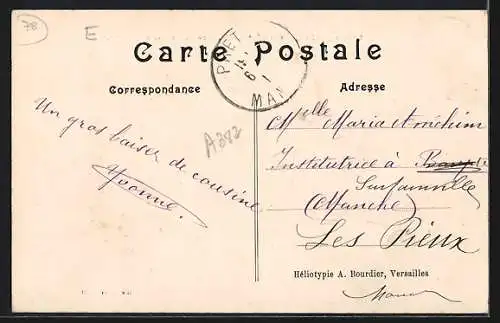 78
E
Carte Postale
Correspondance
Adresse
MAN
A282
Un gros baiser de cousine
Yvonne.
Melle Maria
Institutrice à
Surtainville
(Manche)
Les Pieux
Héliotypie A. Bourdier, Versailles